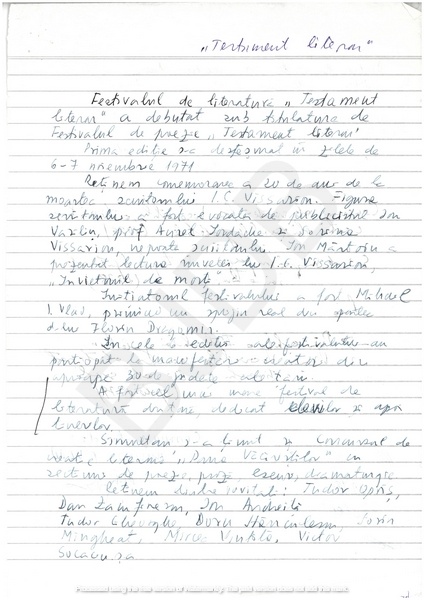 „Testament literar"
Festivalul de literatură „Testament
literar" a debutat sub titulatura de
Festivalul de poezie „Testament literar"
Prima ediție s-a desfășurat în zilele de
6-7 noiembrie 1971
Reținem comemorarea a 20 de ani de la
moartea scriitorului I.C. Vissarion. Figura
scriitorului a fost evocată de publicistul Ion
prof. Aurel Iordache și
Vissarion, nepoata scriitorului. Ion
prezentat lectura nuvelei lui I.C. Vissarion,
de moarte"
Inițiatorul festivalului a fost Mihail
I. Vlad, primind un sprijin real din partea
d-lui Florin Dragomir.
În cele ediții ale festivalului au
participat la manifestare creatori din
aproape 30 de județe ale țării.
A fost cel mai mare festival de
literatură din țară dedicat elevilor și
tinerilor.
Simultan s-a ținut și Concursul de
creație literară în
secțiuni de poezie, proză, eseuri, dramaturgie
Reținem dintre invitați: Tudor Opriș,
Dan Zamfirescu, Ion Andreiță
Tudor Gheorghe, Doru Sorin
Mircea Victor